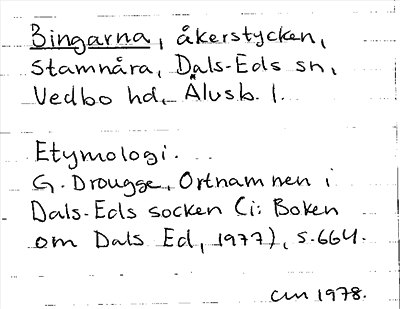 Bingarna, åkerstycken,
Stamnåra, Dals-Eds sn,
Vedbo hd, Älvsb. l.
Etymologi.
G. Drougge, Ortnamnen i
Dals-Eds socken (i: Boken
om Dals Ed, 1977), s. 664.
CM 1978.